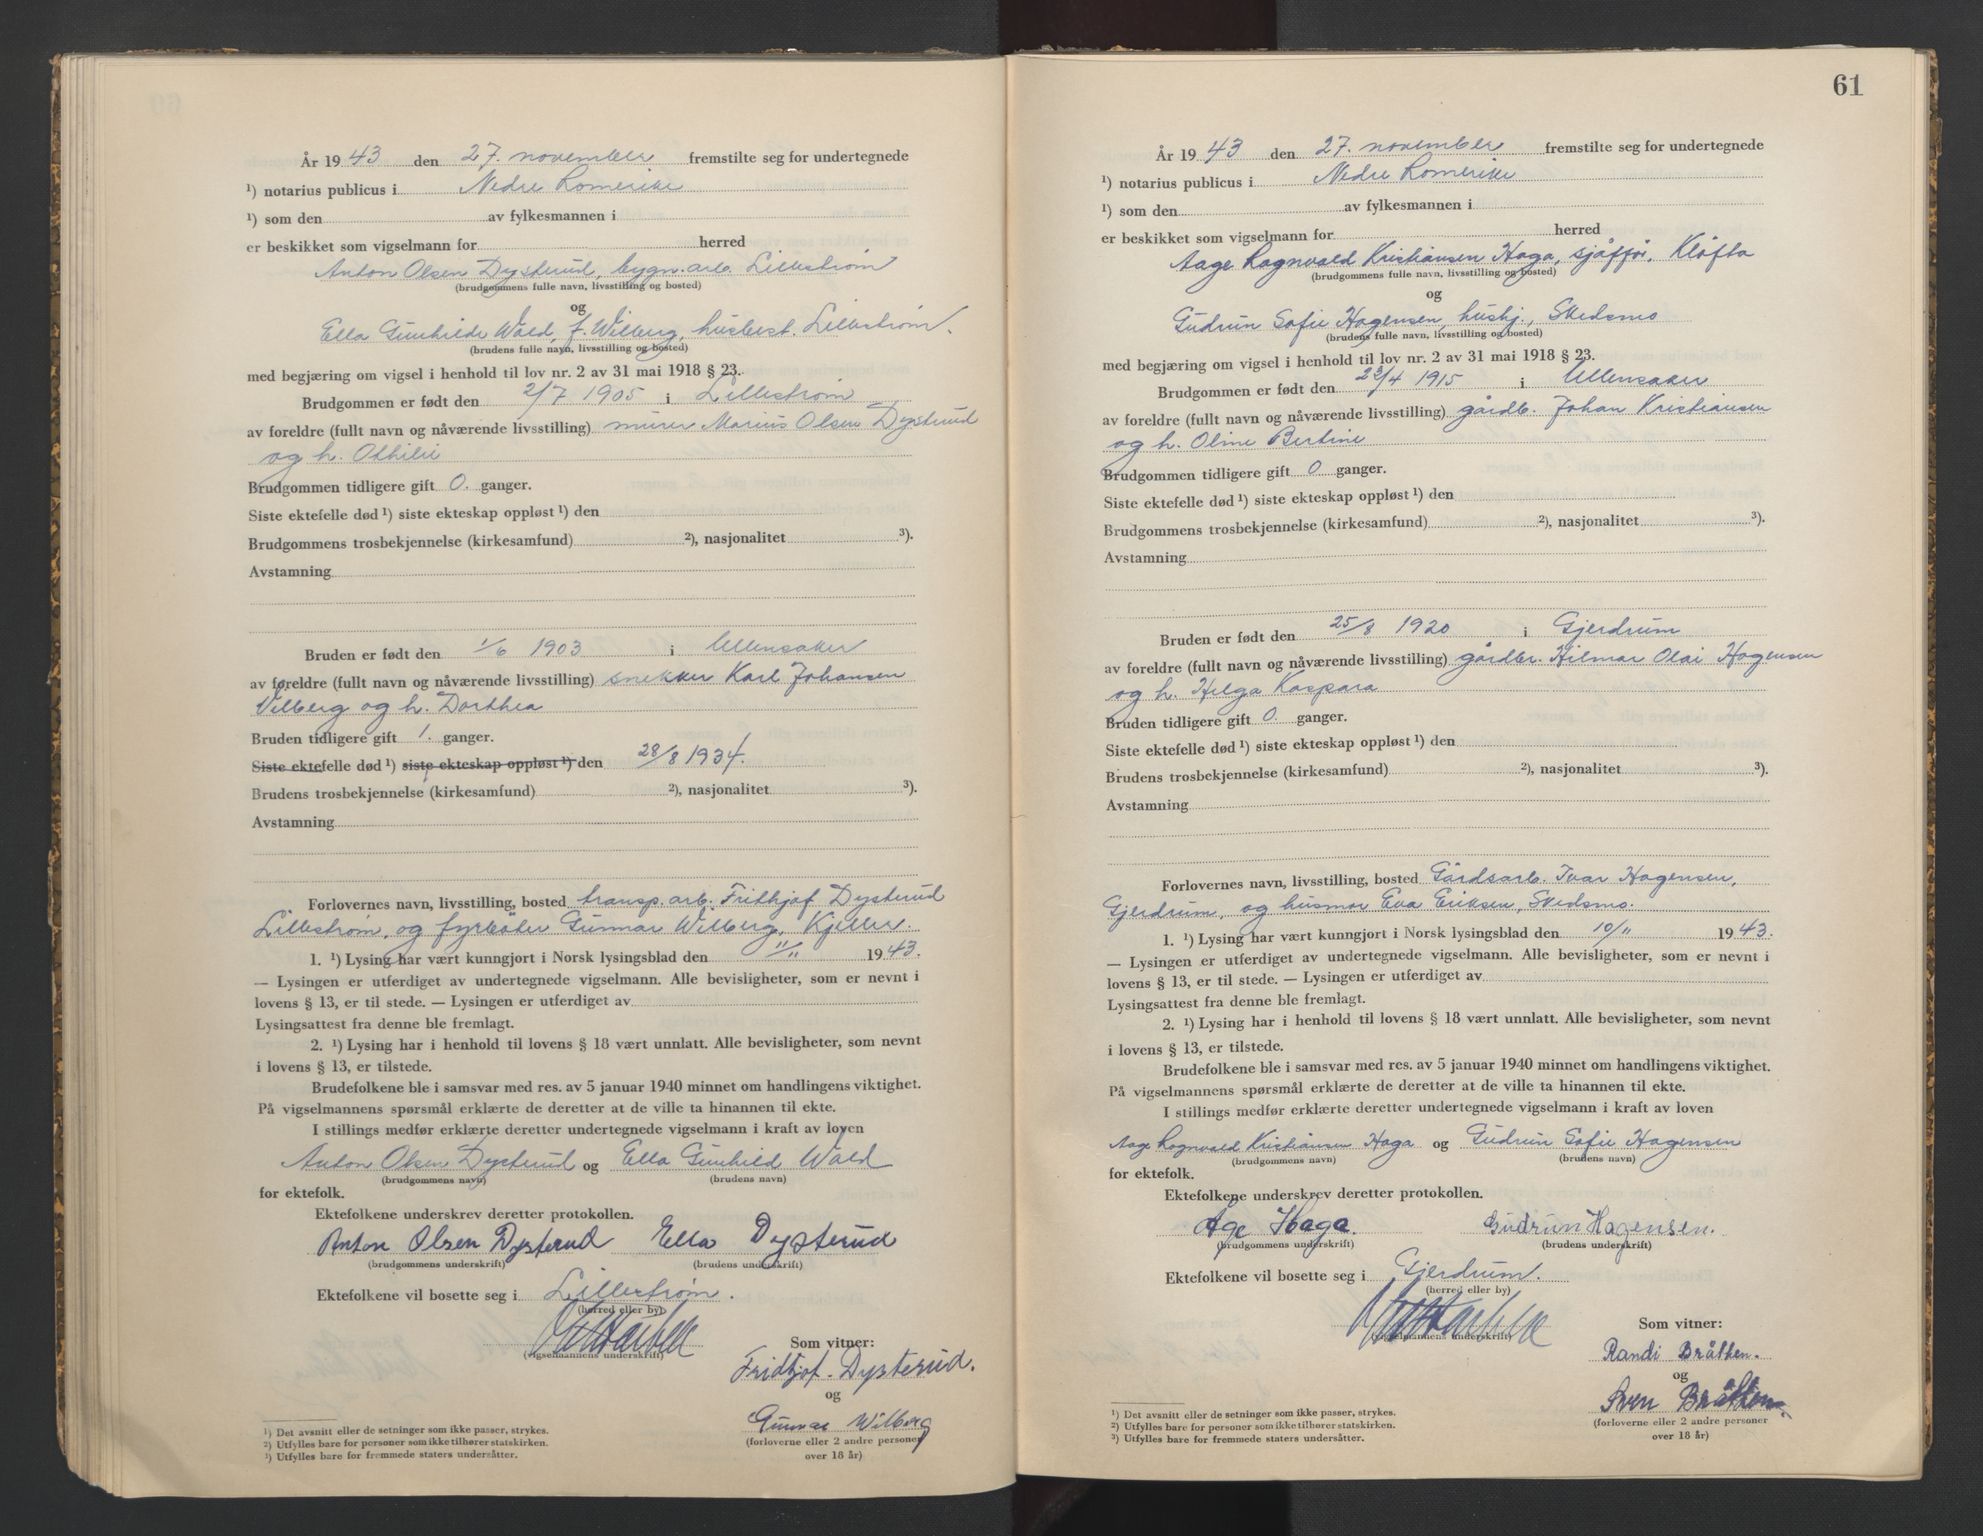 År 19 43 den 27. november fremstilte seg for undertegnede
¹) notarius publicus i Nedre Romerike
¹) som den av fylkesmannen i
er beskikket som vigselmann for herred
Anton Olsen Dysterud, bygn.arb. Lillestrøm
(brudgommens fulle navn, livsstilling og bosted)
og
Ella Gunhilde Wald, f. Wilberg, husbest. Lillestrøm.
(brudens fulle navn, livsstilling og bosted)
med begjæring om vigsel i henhold til lov nr. 2 av 31 mai 1918 § 23.
Brudgommen er født den 2/7 1905 i Lillestrøm
av foreldre (fullt navn og nåværende livsstilling) murer Marius Olsen Dysterud
og h. Othilie
Brudgommen tidligere gift 0. ganger.
Siste ektefelle død ¹) siste ekteskap oppløst ¹) den
Brudgommens trosbekjennelse (kirkesamfund) ²), nasjonalitet ³).
Avstamning
Bruden er født den 1/6 1903 i Ullensaker
av foreldre (fullt navn og nåværende livsstilling) snekker Karl Johansen
Vilberg og h. Dorthea
Bruden tidligere gift 1. ganger.
Siste ektefelle død ¹) siste ekteskap oppløst ¹) den 28/8 1934.
Brudens trosbekjennelse (kirkesamfund) ²), nasjonalitet ³).
Avstamning
Forlovernes navn, livsstilling, bosted transp.arb. Frithjof Dysterud
Lillestrøm, og fyrbøter Gunnar Wilberg, Kjeller.
1. ¹) Lysing har vært kunngjort i Norsk lysingsblad den 11/11 1943.
— Lysingen er utferdiget av undertegnede vigselmann. Alle bevisligheter, som er nevnt i
lovens § 13, er til stede. — Lysingen er utferdiget av
Lysingsattest fra denne ble fremlagt.
2. ¹) Lysing har i henhold til lovens § 18 vært unnlatt. Alle bevisligheter, som nevnt
i lovens § 13, er tilstede.
Brudefolkene ble i samsvar med res. av 5 januar 1940 minnet om handlingens viktighet.
På vigselmannens spørsmål erklærte de deretter at de ville ta hinannen til ekte.
I stillings medfør erklærte deretter undertegnede vigselmann i kraft av loven
Anton Olsen Dysterud og Ella Gunhild Wald
(brudgommens navn) (brudens navn)
for ektefolk.
Ektefolkene underskrev deretter protokollen.
Anton Olsen Dysterud Ella Dysterud
(brudgommens underskrift) (brudens underskrift)
Ektefolkene vil bosette seg i Lillestrøm.
(herred eller by)
(vigselmannens underskrift)
Som vitner:
Fridtjof. Dysterud.
og
Gunnar Wilberg
(forloverne eller 2 andre personer
over 18 år)
¹) Det avsnitt eller de setninger som ikke passer, strykes.
²) Utfylles bare for personer som ikke tilhører statskirken.
³) Utfylles bare for fremmede staters undersåtter.
61
År 19 43 den 27. november fremstilte seg for undertegnede
¹) notarius publicus i Nedre Romerike
¹) som den av fylkesmannen i
er beskikket som vigselmann for herred
Aage Ragnvald Kristiansen Haga, sjåffør, Kløfta
(brudgommens fulle navn, livsstilling og bosted)
og
Gudrun Sofie Hagensen, hushj., Skedsmo
(brudens fulle navn, livsstilling og bosted)
med begjæring om vigsel i henhold til lov nr. 2 av 31 mai 1918 § 23.
Brudgommen er født den /4 1915 i Ullensaker
av foreldre (fullt navn og nåværende livsstilling) gårdb. Johan Kristiansen
og h. Oline Bertine
Brudgommen tidligere gift 0 ganger.
Siste ektefelle død ¹) siste ekteskap oppløst ¹) den
Brudgommens trosbekjennelse (kirkesamfund) ²), nasjonalitet ³).
Avstamning
Bruden er født den 25/8 1920 i Gjerdrum
av foreldre (fullt navn og nåværende livsstilling) gårdbr. Hilmar Olai Hagensen
og h. Helga Kaspara
Bruden tidligere gift 0. ganger.
Siste ektefelle død ¹) siste ekteskap oppløst ¹) den
Brudens trosbekjennelse (kirkesamfund) ²), nasjonalitet ³).
Avstamning
Forlovernes navn, livsstilling, bosted Gårdsarb. Ivar Hagensen,
Gjerdrum, og husmor Eva Eriksen, Skedsmo.
1. ¹) Lysing har vært kunngjort i Norsk lysingsblad den 10/11 1943.
— Lysingen er utferdiget av undertegnede vigselmann. Alle bevisligheter, som er nevnt i
lovens § 13, er til stede. — Lysingen er utferdiget av
Lysingsattest fra denne ble fremlagt.
2. ¹) Lysing har i henhold til lovens § 18 vært unnlatt. Alle bevisligheter, som nevnt
i lovens § 13, er tilstede.
Brudefolkene ble i samsvar med res. av 5 januar 1940 minnet om handlingens viktighet.
På vigselmannens spørsmål erklærte de deretter at de ville ta hinannen til ekte.
I stillings medfør erklærte deretter undertegnede vigselmann i kraft av loven
Aage Ragnvald Kristiansen Haga og Gudrun Sofie Hagensen
(brudgommens navn) (brudens navn)
for ektefolk.
Ektefolkene underskrev deretter protokollen.
Åge Haga. Gudrun Hagensen.
(brudgommens underskrift) (brudens underskrift)
Ektefolkene vil bosette seg i Gjerdrum.
(herred eller by)
(vigselmannens underskrift)
Som vitner:
Randi Bråthen.
og
Sven Bråthen
(forloverne eller 2 andre personer
over 18 år)
¹) Det avsnitt eller de setninger som ikke passer, strykes.
²) Utfylles bare for personer som ikke tilhører statskirken.
³) Utfylles bare for fremmede staters undersåtter.